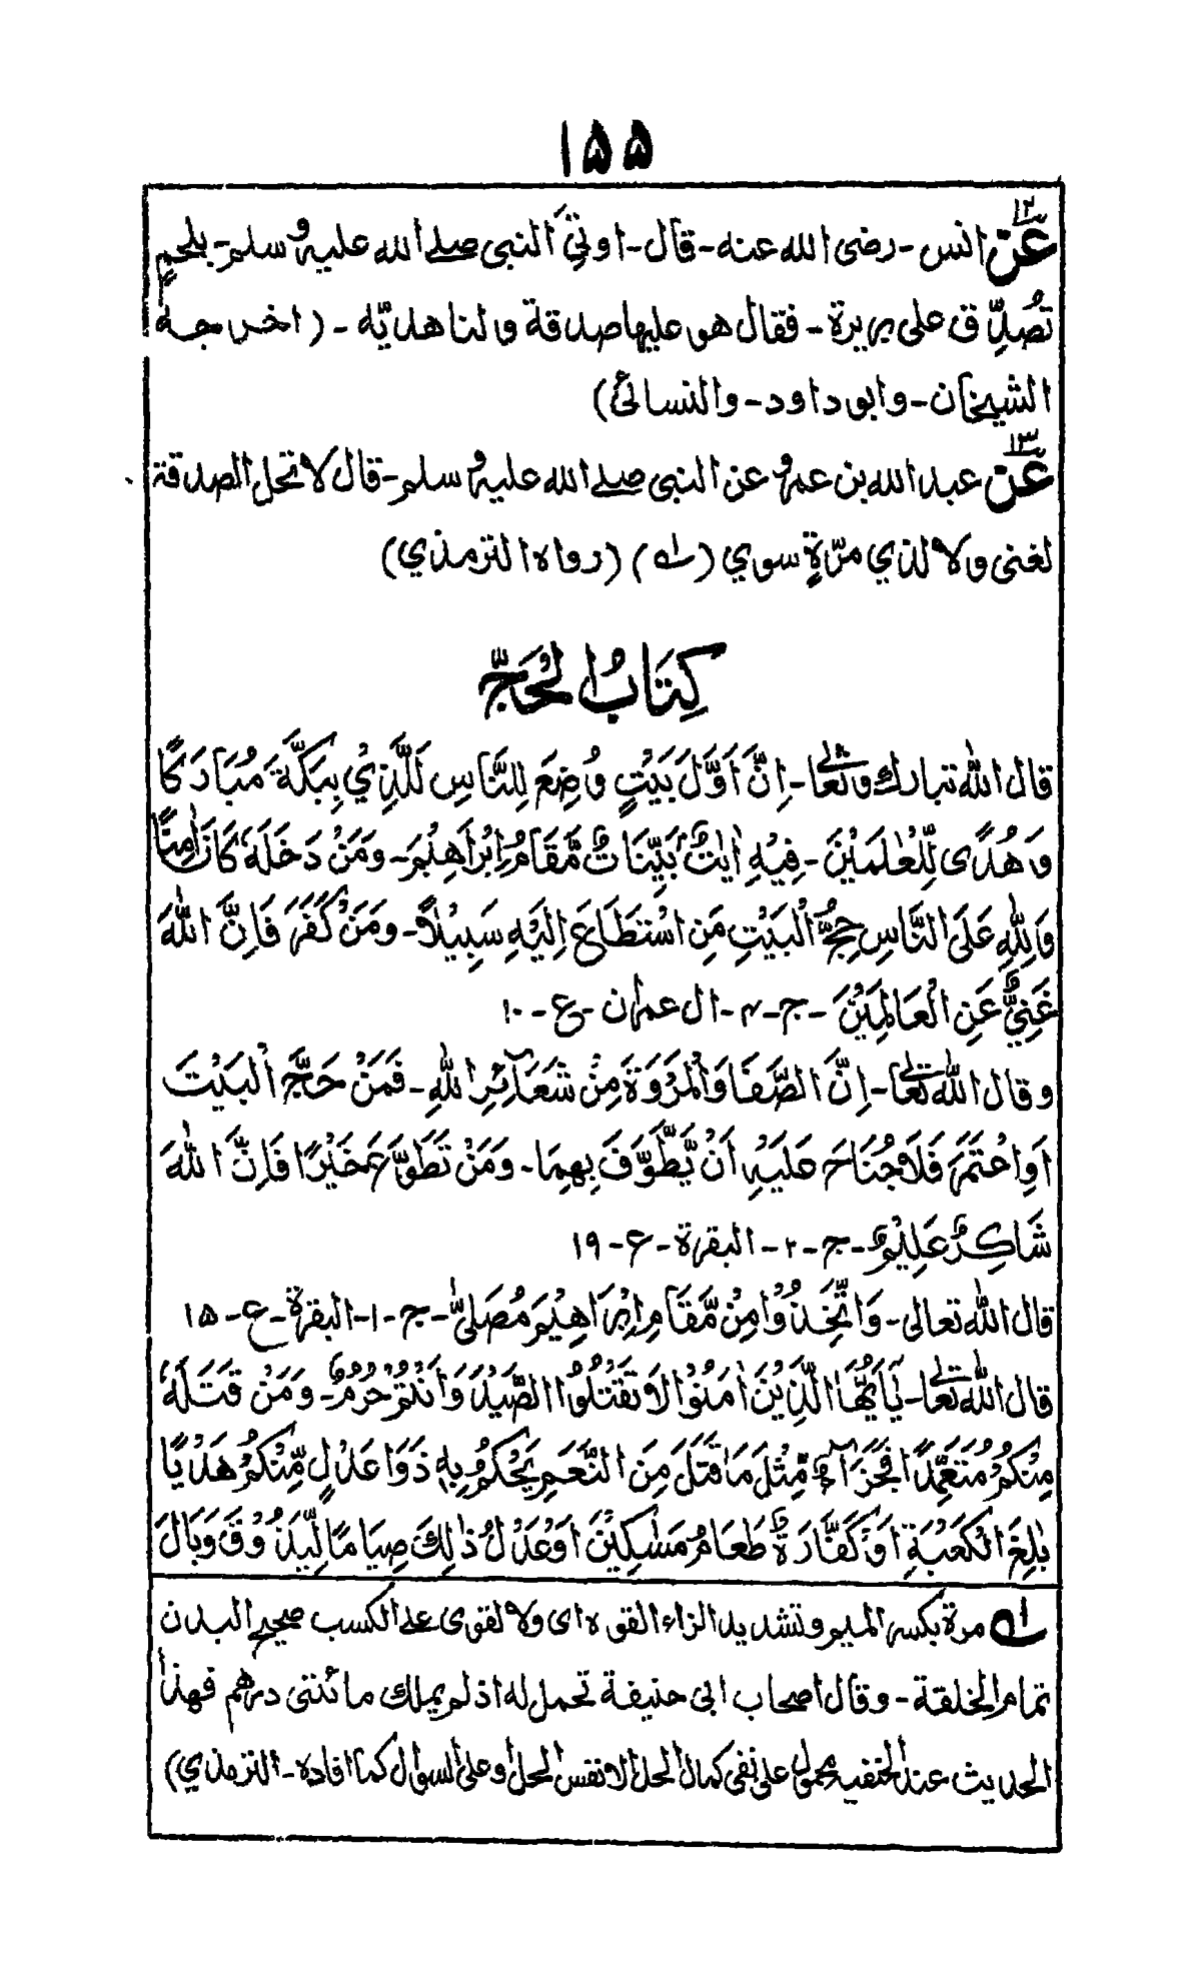 ۱۵۵
۱۲
عن انس - رضى الله عنه - قال - اوتيَ النبى صلے الله عليه و سلم - بلحمٍ
تصُدِّق على بريرة - فقال هو عليها صدقة ولنا هديّه - (اخرجه
الشيخان - وابو داود - والنسائى)
۱۳
عن عبد الله بن عمرو عن النبى صلے الله عليه و سلم - قال لا تحل الصدقة
لغنى ولا لذي مرّةٍ سوي (له) (رواه الترمذي)
كِتَابُ الْحَجّ
قال الله تبارك وتعالى - اِنَّ اَوَّلَ بَيْتٍ وُضِعَ لِلنَّاسِ لَلَّذِيْ بِبَكَّةَ مُبَارَكًا
وَهُدًى لِّلْعٰلَمَيْنَ - فِيْهِ اٰيٰتٌ بَيِّنَاتٌ مَّقَامُ اِبْرَاهِيْمَ - وَمَنْ دَخَلَهٗ كَانَ اٰمِنًا
وَلِلّٰهِ عَلَى النَّاسِ حِجُّ الْبَيْتِ مَنِ اسْتَطَاعَ اِلَيْهِ سَبِيْلاً - وَمَنْ كَفَرَ فَاِنَّ اللهَ
غَنِيٌّ عَنِ الْعَالَمِيْنَ - ج - ۴ - ال عمران - ع - ۱۰
وقال الله تعالى - اِنَّ الصَّفَا وَالْمَرْوَةَ مِنْ شَعَآئِرِ اللهِ - فَمَنْ حَجَّ الْبَيْتَ
اَوِاعْتَمَرَ فَلَا جُنَاحَ عَلَيْهِ اَنْ يَّطَّوَّفَ بِهِمَا - وَمَنْ تَطَوَّعَ خَيْرًا فَاِنَّ اللهَ
شَاكِرٌ عَلِيْمٌ - ج - ۲ - البقرة - ع - ۱۹
قال الله تعالى - وَاتَّخِذُوْا مِنْ مَّقَامِ اِبْرَاهِيْمَ مُصَلًّى - ج - ۱ - البقرة - ع - ۱۵
قال الله تعالى - يٰۤاَيُّهَا الَّذِيْنَ اٰمَنُوْا لَا تَقْتُلُوا الصَّيْدَ وَاَنْتُمْ حُرُمٌ - وَمَنْ قَتَلَهٗ
مِنْكُمْ مُتَعَمِّدًا فَجَزَآءٌ مِّثْلَ مَا قَتَلَ مِنَ النَّعَمِ يَحْكُمُ بِهٖ ذَوَا عَدْلٍ مِّنْكُمْ هَدْيًا
بٰلِغَ الْكَعْبَةِ اَوْ كَفَّارَةٌ طَعَامُ مَسٰكِيْنَ اَوْعَدْلُ ذٰلِكَ صِيَامًا لِّيَذُوْقَ وَبَالَ
له مرة بكسر الميم وتشديد الراء القوه اى ولا لقوى على الكسب صحيح البدن
تمام الخلقة - وقال اصحاب ابى حنيفة تحمل له اذ لم يملك مائتى درهم فهذا
الحديث عند الحنفيه محمول على نفى كمال الحل لا نفس الحل او على السوال كما افاده - الترمذي)